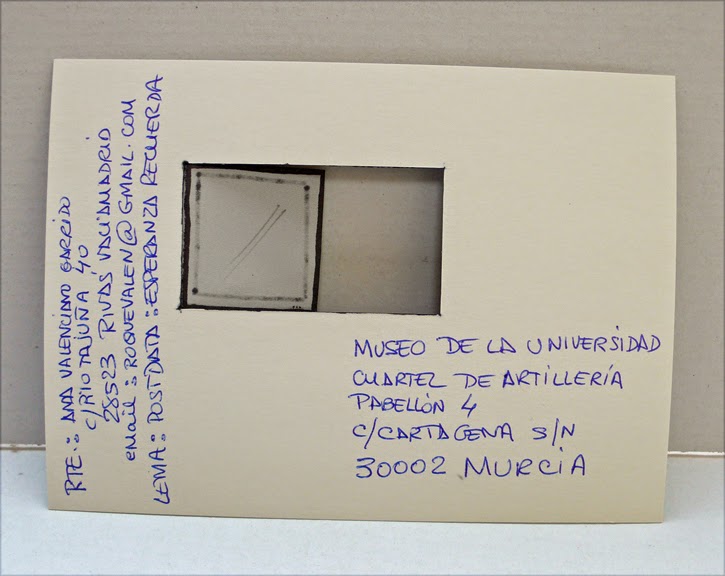 RTE.: ANA VALENCIANO GARRIDO
C/RIOTAJUÑA 40
28523 RIVAS VACIAMADRID
email : ROQUEVALEN@GMAIL.COM
LEMA: POSTDATA: ESPERANZA RECUERDA
MUSEO DE LA UNIVERSIDAD
CUARTEL DE ARTILLERÍA
PABELLÓN 4
C/CARTAGENA S/N
30002 MURCIA